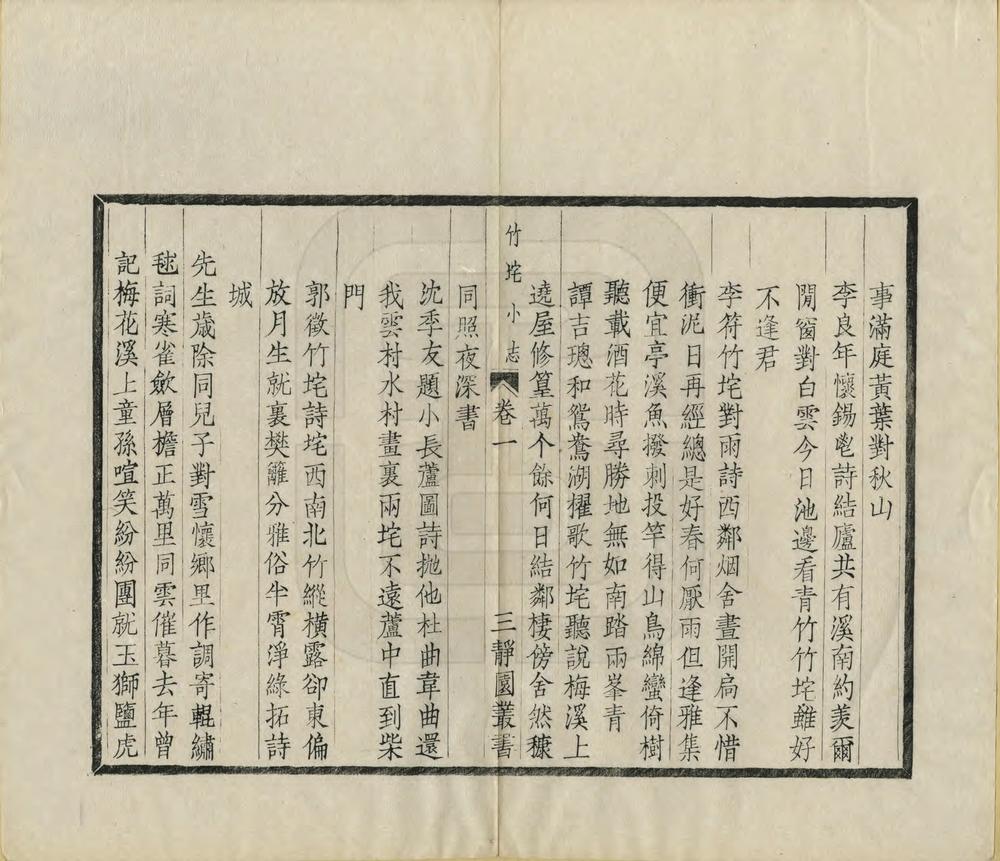 事滿庭黃葉對秋山
李良年懷錫鬯詩結廬共有溪南約羨爾
閒窗對白雲今日池邊看青竹竹垞雖好
不逢君
李符竹垞對雨詩西鄰烟舍晝開扃不惜
衝泥日再經總是好春何厭雨但逢雅集
便宜亭溪魚撥剌投竿得山鳥綿蠻倚樹
聽載酒花時尋勝地無如南踏兩峯青
譚吉璁和鴛鴦湖櫂歌竹垞聽說梅溪上
遶屋修篁萬个餘何日結鄰棲傍舍然穅
竹垞小志 卷一 三 靜園叢書
同照夜深書
沈季友題小長蘆圖詩拋他杜曲韋曲還
我雲村水村畫裏兩垞不遠蘆中直到柴
門
郭徵竹垞詩垞西南北竹縱橫露卻東偏
放月生就裏樊籬分雅俗半霄淨綠拓詩
城
先生歲除同兒子對雪懷鄉里作調寄輥繡
毬詞寒雀斂層檐正萬里同雲催暮去年曾
記梅花溪上童孫喧笑紛紛團就玉獅鹽虎